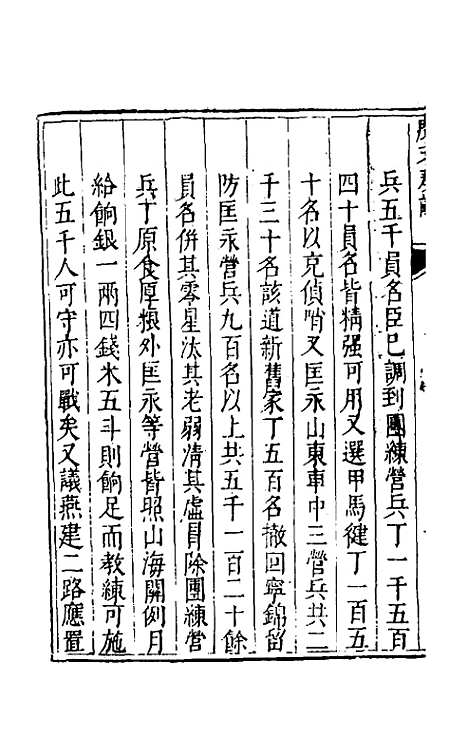 兵五千員名臣已調到團練營兵丁一千五百
四十員名皆精强可用又選甲馬健丁一百五
十名以充偵哨又匡永山東車中三營兵共二
千三十名該道新舊家丁五百名撤回寧錦留
防匡永營兵九百名以上共五千一百二十餘
員名併其零星汰其老弱清其虛冒除團練營
兵丁原食厚粮外匡永等營皆照山海關例月
給餉銀一兩四錢米五斗則餉足而教練可施
此五千人可守亦可戰矣又議燕建二路應置